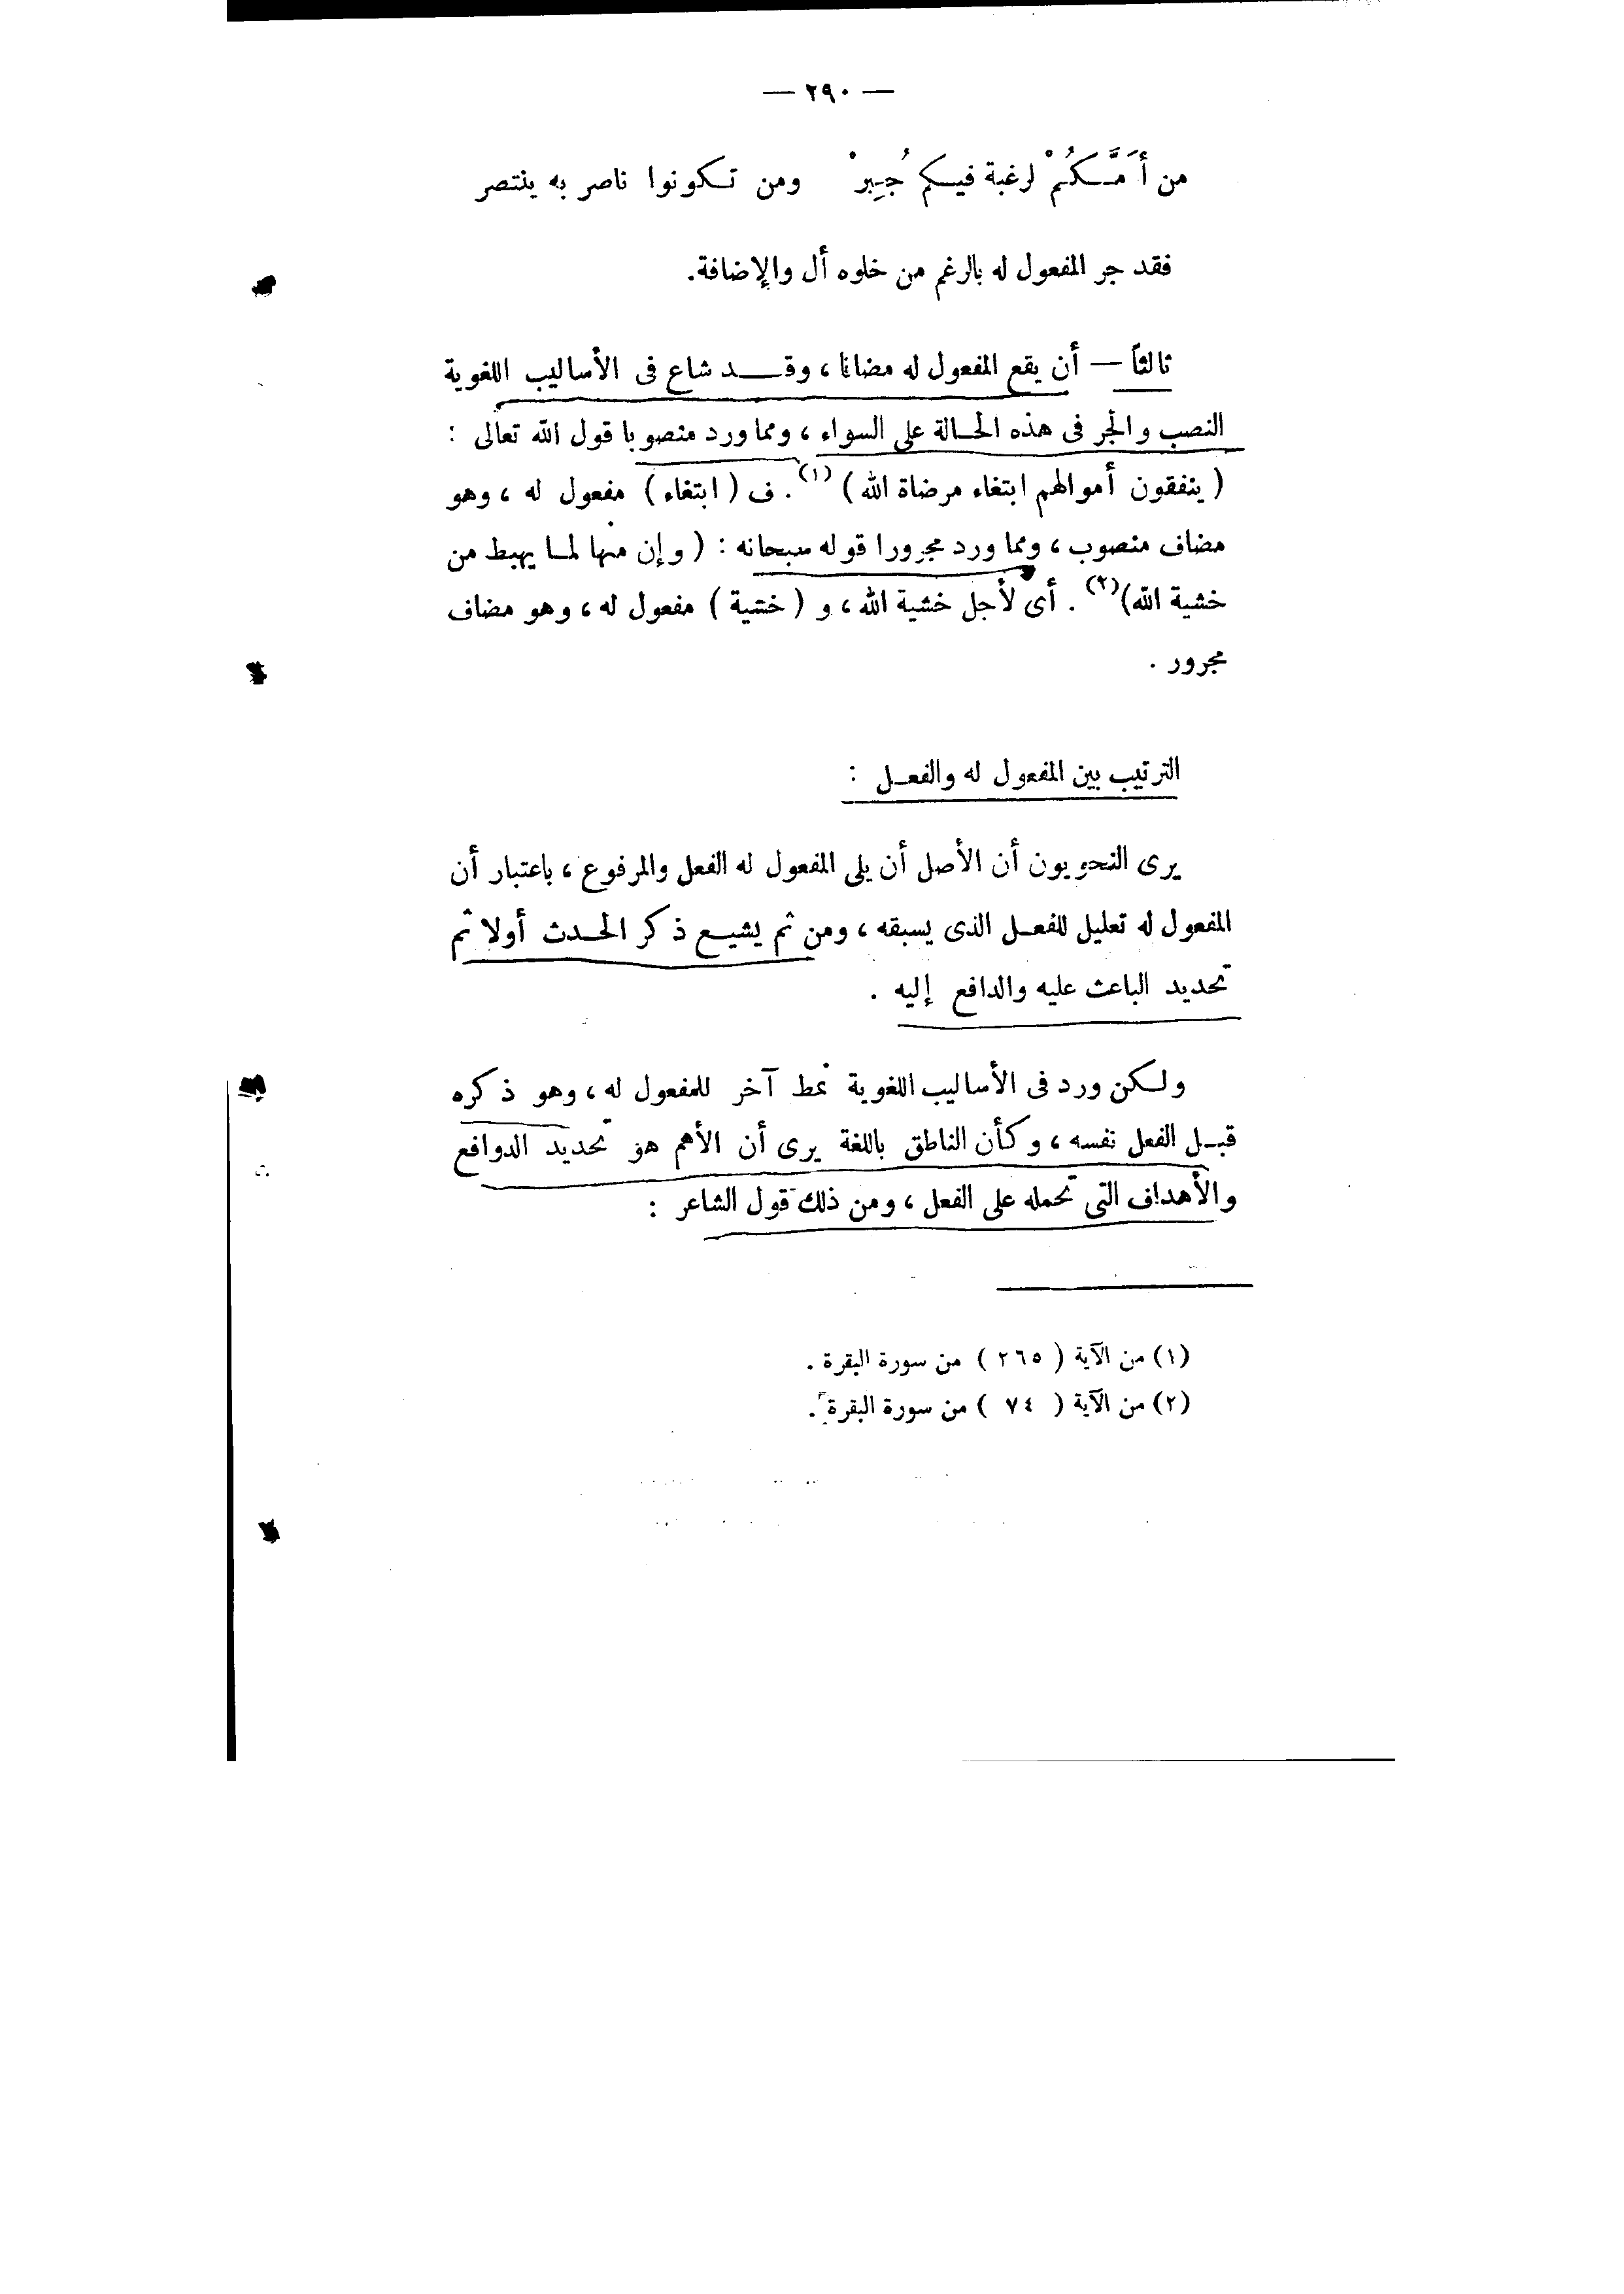 — ٢٩٠ —
من أَمَّكُمْ لرغبة فيكم جُبِرْ ومن تكونوا ناصر به ينتصر
فقد جر المفعول له بالرغم من خلوه أل والإضافة.
ثالثاً — أن يقع المفعول له مضافا ، وقد شاع فى الأساليب اللغوية
النصب والجر فى هذه الحالة على السواء ، ومما ورد منصوبا قول الله تعالى :
( ينفقون أموالهم ابتغاء مرضاة الله ) (١) . ف ( ابتغاء ) مفعول له ، وهو
مضاف منصوب ، ومما ورد مجرورا قوله سبحانه : ( وإن منها لما يهبط من
خشية الله) (٢) . أى لأجل خشية الله ، و ( خشية ) مفعول له ، وهو مضاف
مجرور .
الترتيب بين المفعول له والفعل :
يرى النحويون أن الأصل أن يلى المفعول له الفعل والمرفوع ، باعتبار أن
المفعول له تعليل للفعل الذى يسبقه ، ومن ثم يشيع ذكر الحدث أولا ثم
تحديد الباعث عليه والدافع إليه .
ولكن ورد فى الأساليب اللغوية نمط آخر للمفعول له ، وهو ذكره
قبل الفعل نفسه ، وكأن الناطق باللغة يرى أن الأهم هو تحديد الدوافع
والأهداف التى تحمله على الفعل ، ومن ذلك قول الشاعر :
(١) من الآية ( ٢٦٥ ) من سورة البقرة .
(٢) من الآية ( ٧٤ ) من سورة البقرة .